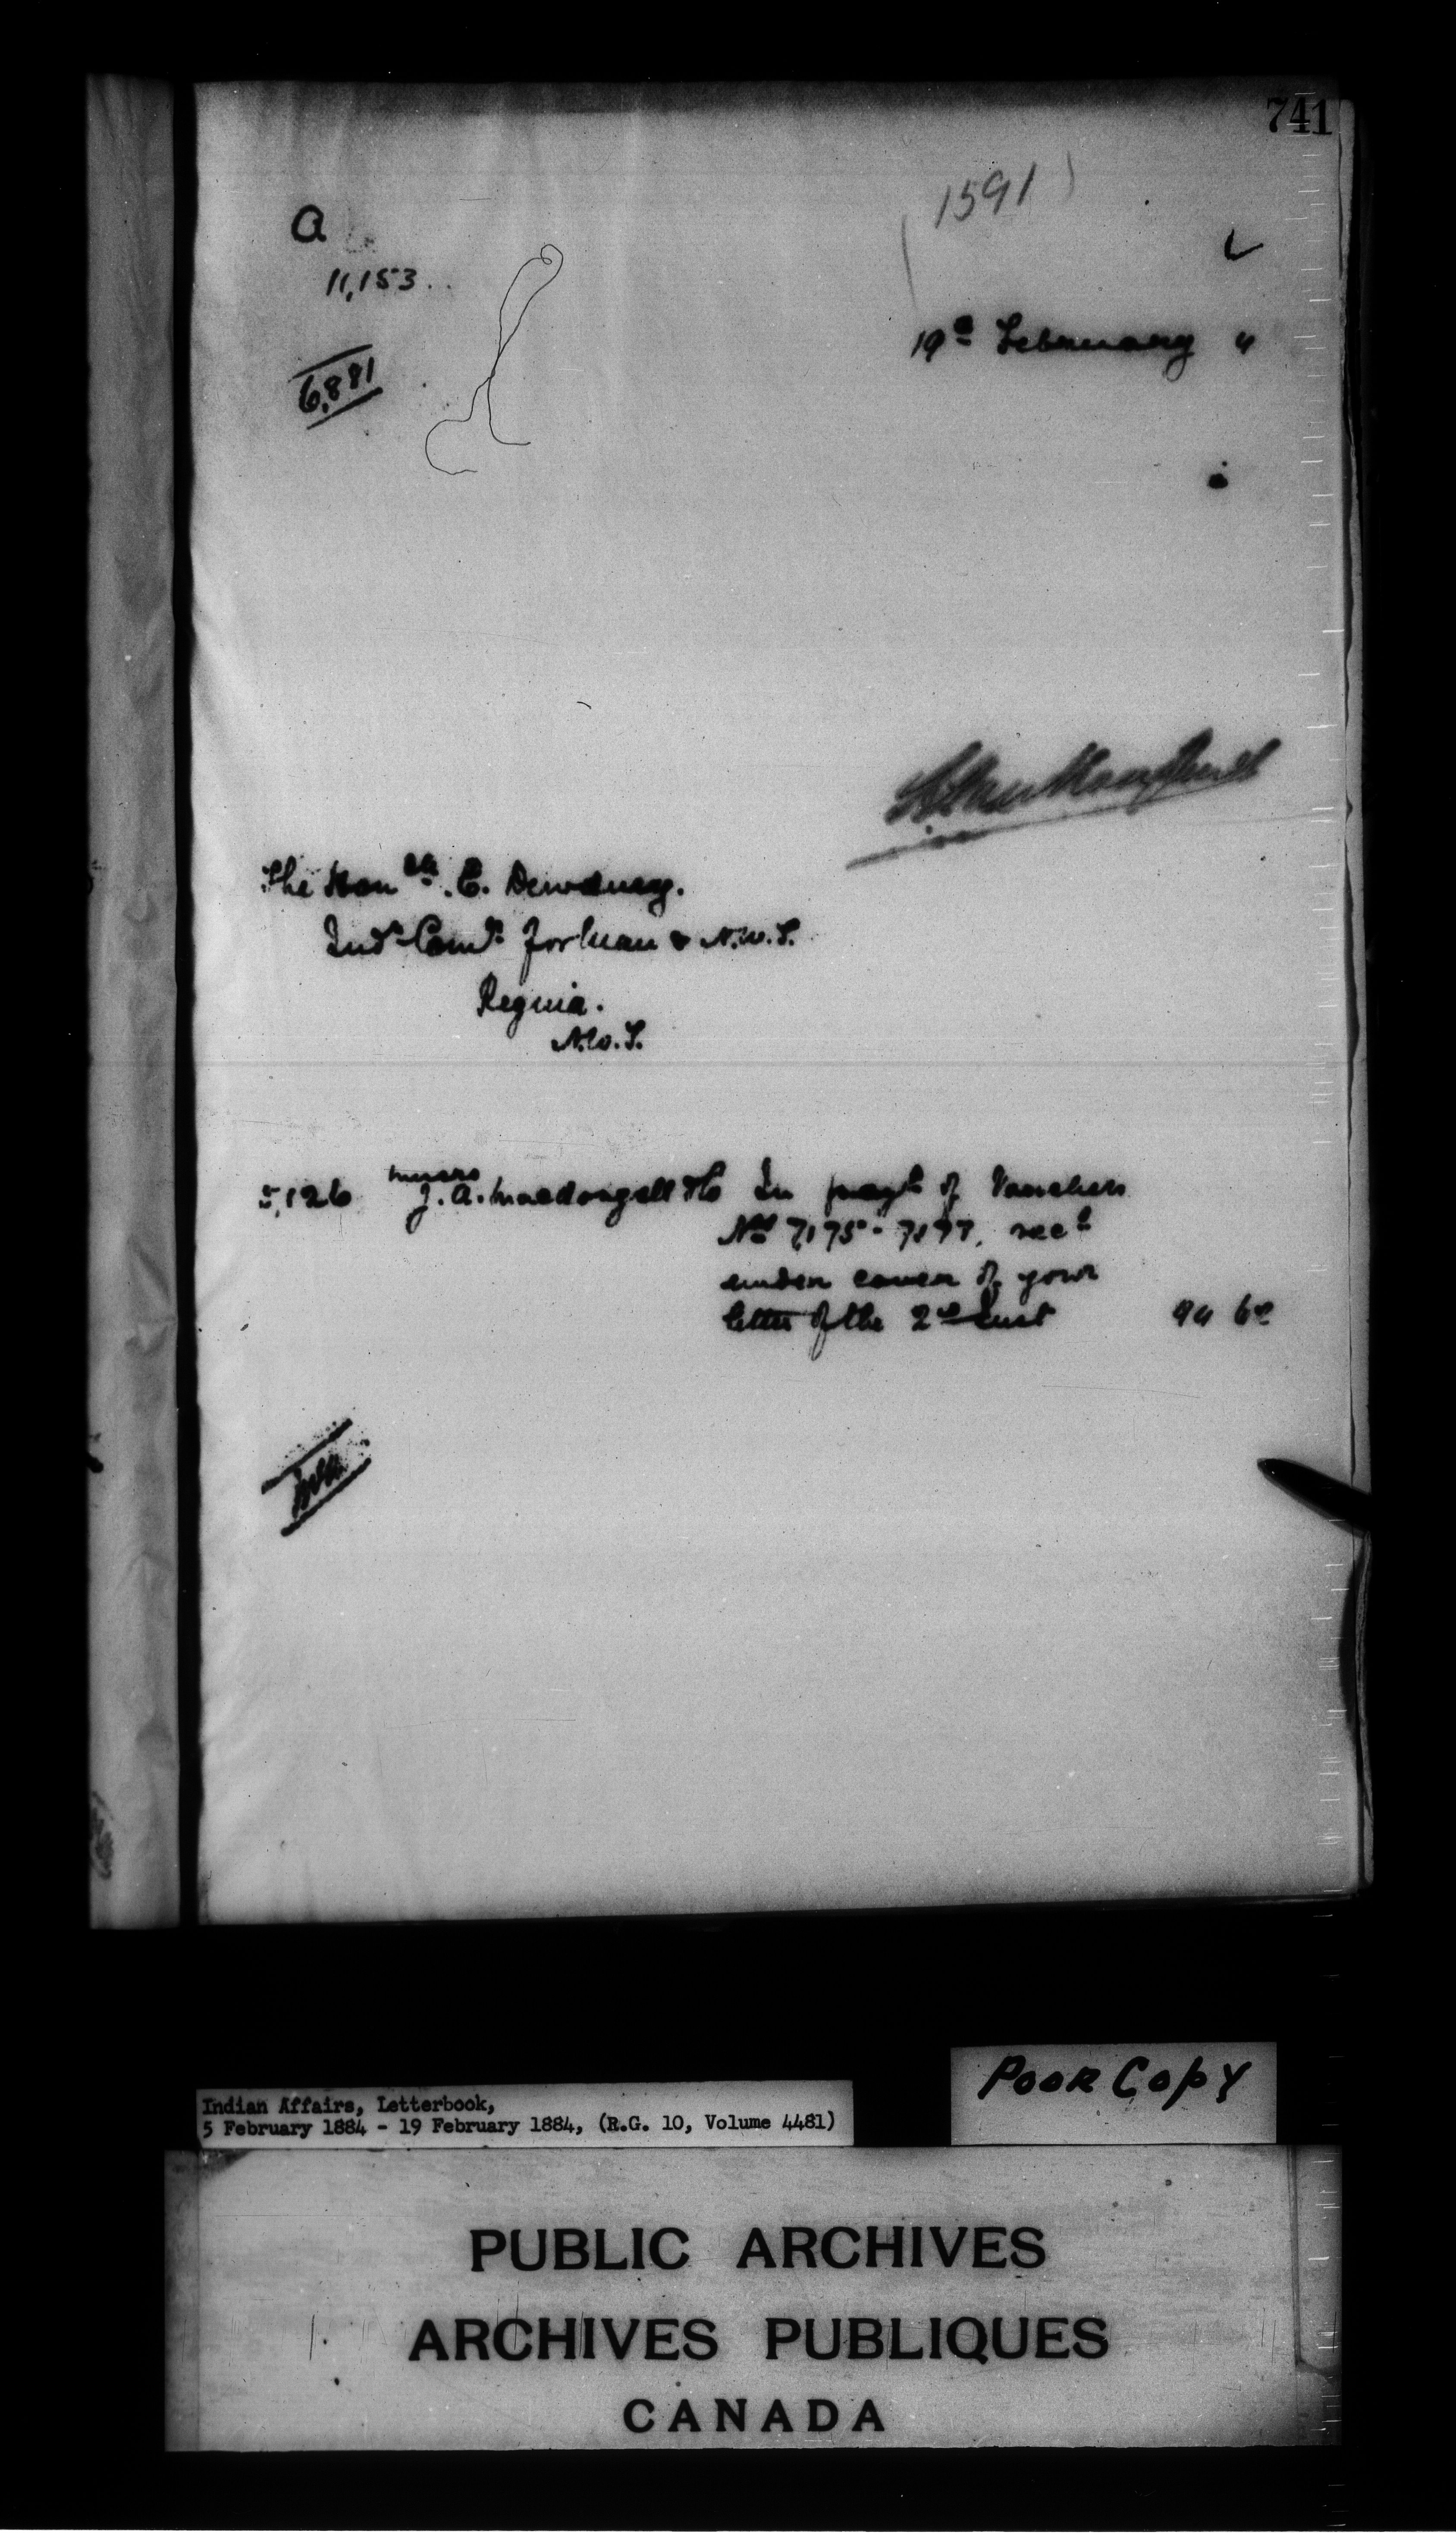 741
1591
a
11,153.
6,881
19th February "
The Honble. E. Dewdney.
Indn Comr for Man & N.W.T.
Regina.
N.W.T.
5,126 Messrs J. A. Macdougall &Co In payt of Vouchers
Nos 7,175 - 7,177, recd
under cover of your
letter of the 2nd Inst
Indian Affairs, Letterbook,
5 February 1884 - 19 February 1884, (R.G. 10, Volume 4481)
POOR COPY
PUBLIC ARCHIVES
ARCHIVES PUBLIQUES
CANADA